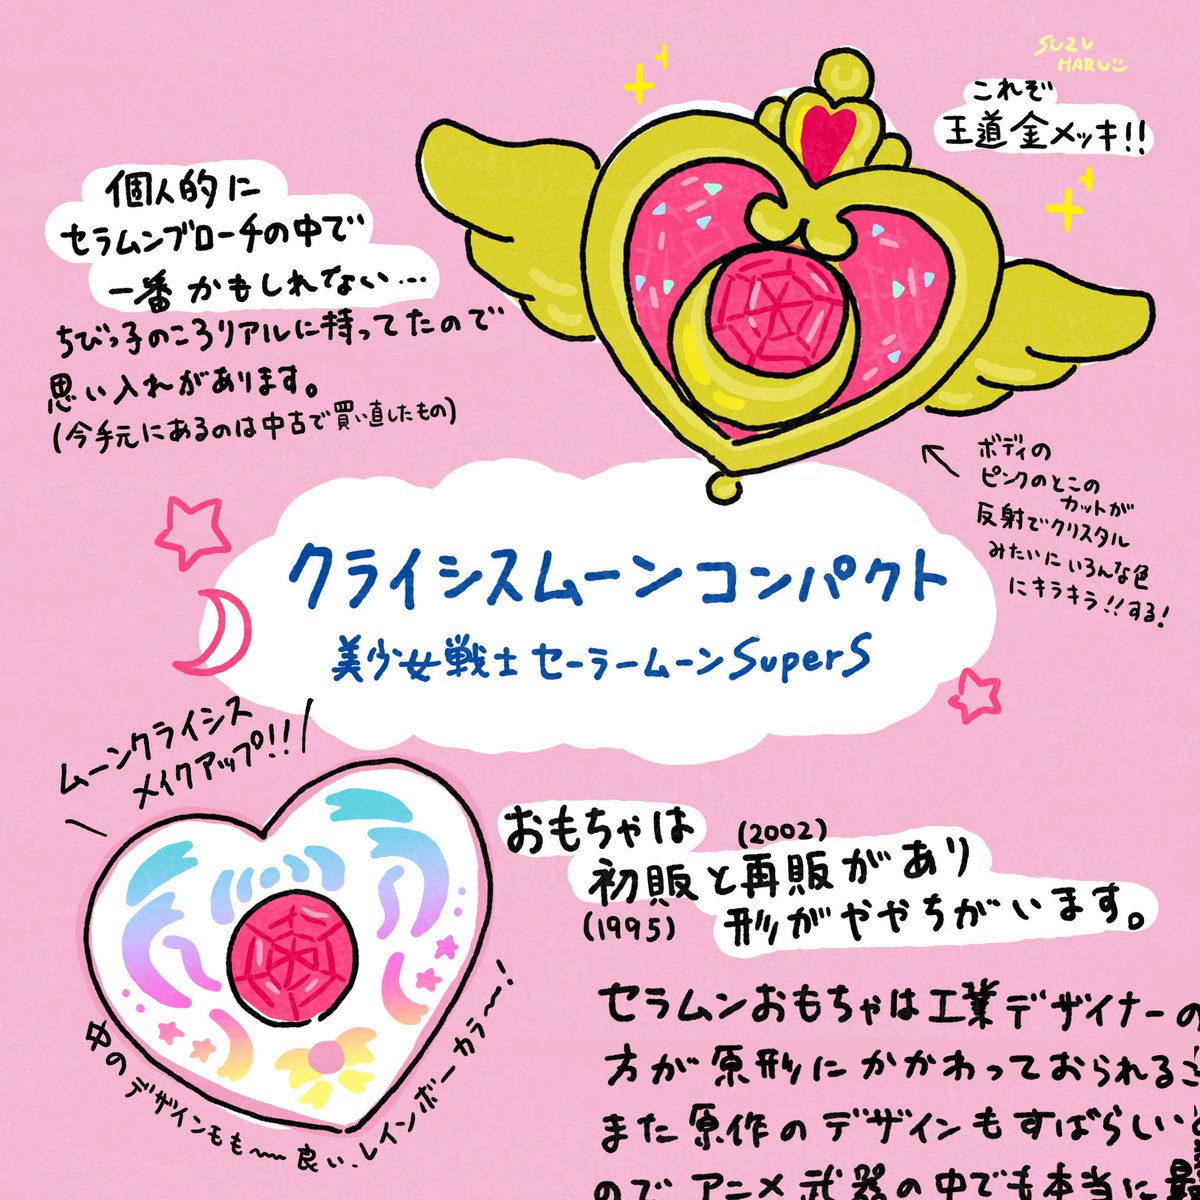 SUZU
HARU
これぞ
王道金メッキ!!
個人的に
セラムンブローチの中で
一番かもしれない…
ちびっ子のころリアルに持ってたので
思い入れがあります。
(今手元にあるのは中古で買い直したもの)
ボディの
ピンクのとこの
カットが
反射でクリスタル
みたいにいろんな色
にキラキラ!!する!
クライシスムーンコンパクト
美少女戦士セーラームーンSuperS
ムーンクライシス
メイクアップ!!
おもちゃは
(2002)
初販と再販があり
(1995)
形がややちがいます。
中のデザインもも〜良い、レインボーカラ〜!
セラムンおもちゃは工業デザイナーの
方が原形にかかわっておられる
また原作のデザインもすばらしい
のでアニメ武器の中でも本当に